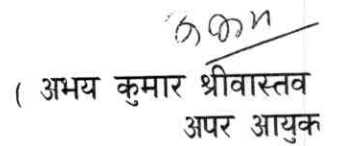 ( अभय कुमार श्रीवास्तव
अपर आयुक